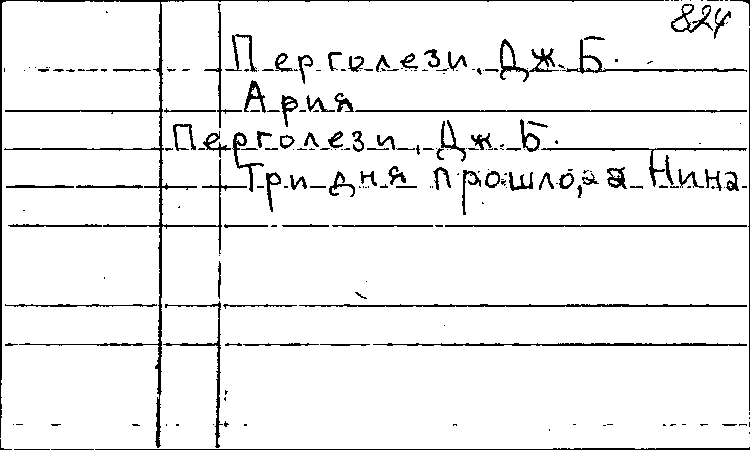 824
Перголези, Дж. Б.
Ария
Перголези, Дж. Б.
Три дня прошло, а Нина